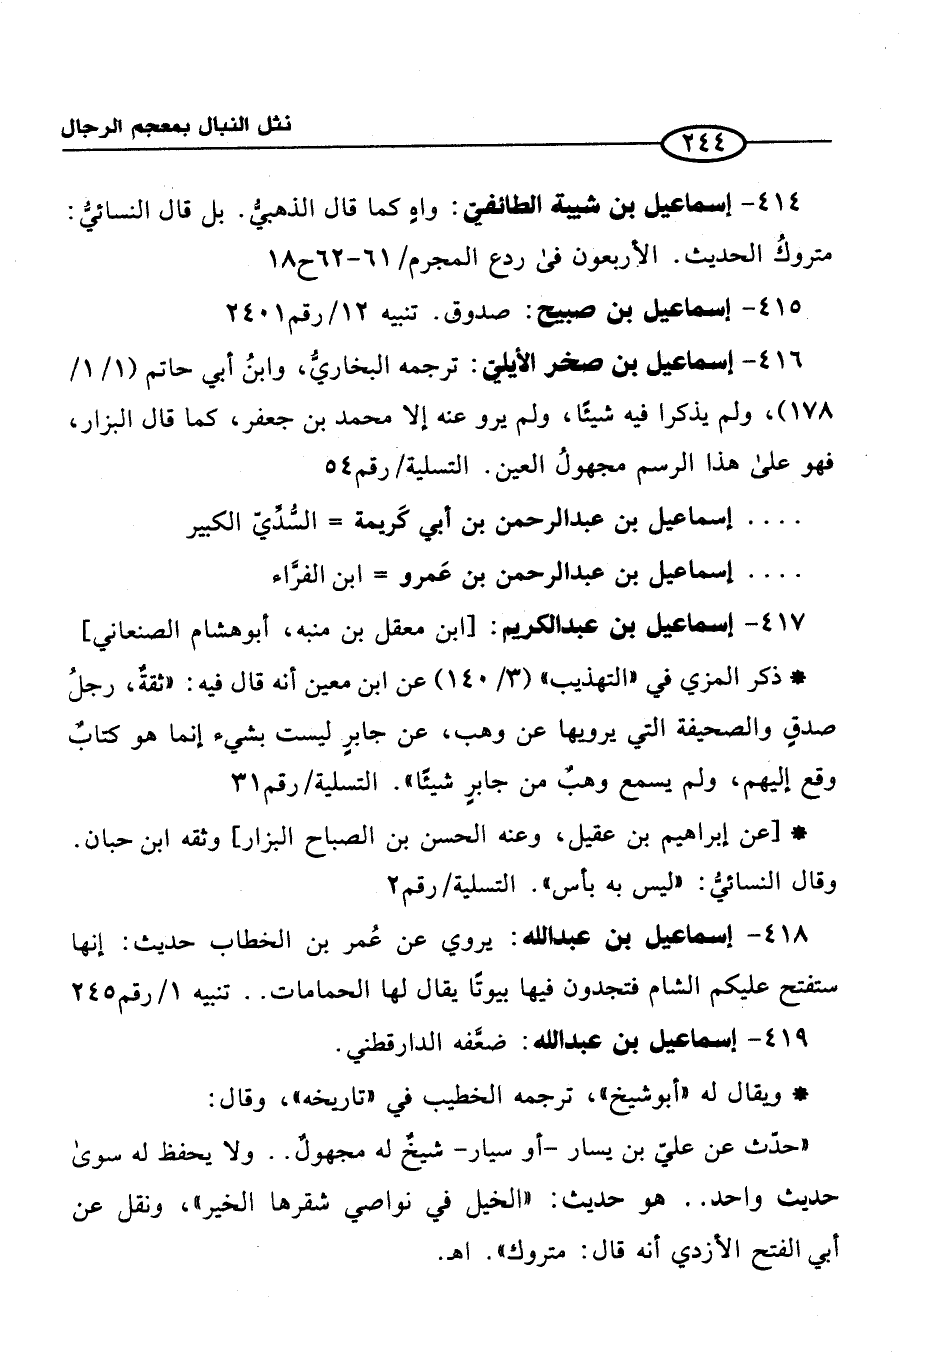 نثل النبال بمعجم الرجال
٢٤٤
٤١٤- إسماعيل بن شيبة الطائفيّ: واهٍ كما قال الذهبيُّ. بل قال النسائيُّ:
متروكُ الحديث. الأربعون فى ردع المجرم/ ٦١-٦٢ح١٨
٤١٥- إسماعيل بن صبيح: صدوق. تنبيه ١٢/ رقم٢٤٠١
٤١٦- إسماعيل بن صخر الأيليّ: ترجمه البخاريُّ، وابنُ أبي حاتم (١/ ١/
١٧٨)، ولم يذكرا فيه شيئًا، ولم يرو عنه إلا محمد بن جعفر، كما قال البزار،
فهو علىٰ هذا الرسم مجهولُ العين. التسلية/ رقم٥٤
.... إسماعيل بن عبدالرحمن بن أبي كَريمة = السُّدِّيّ الكبير
.... إسماعيل بن عبدالرحمن بن عَمرو = ابن الفرَّاء
٤١٧- إسماعيل بن عبدالكريم: [ابن معقل بن منبه، أبوهشام الصنعاني]
* ذكر المزي في «التهذيب» (٣/ ١٤٠) عن ابن معين أنه قال فيه: «ثقةٌ، رجلُ
صدقٍ والصحيفة التي يرويها عن وهب، عن جابرٍ ليست بشيء إنما هو كتابٌ
وقع إليهم، ولم يسمع وهبٌ من جابرٍ شيئًا». التسلية/ رقم٣١
* [عن إبراهيم بن عقيل، وعنه الحسن بن الصباح البزار] وثقه ابن حبان.
وقال النسائيُّ: «ليس به بأس». التسلية/ رقم٢
٤١٨- إسماعيل بن عبدالله: يروي عن عُمر بن الخطاب حديث: إنها
ستفتح عليكم الشام فتجدون فيها بيوتًا يقال لها الحمامات.. تنبيه ١/ رقم٢٤٥
٤١٩- إسماعيل بن عبدالله: ضعَّفه الدارقطني.
* ويقال له «أبوشيخ»، ترجمه الخطيب في «تاريخه»، وقال:
«حدّث عن عليّ بن يسار -أو سيار- شيخٌ له مجهولٌ.. ولا يحفظ له سوىٰ
حديث واحد.. هو حديث: «الخيل في نواصي شقرها الخير»، ونقل عن
أبي الفتح الأزدي أنه قال: متروك». اهـ.